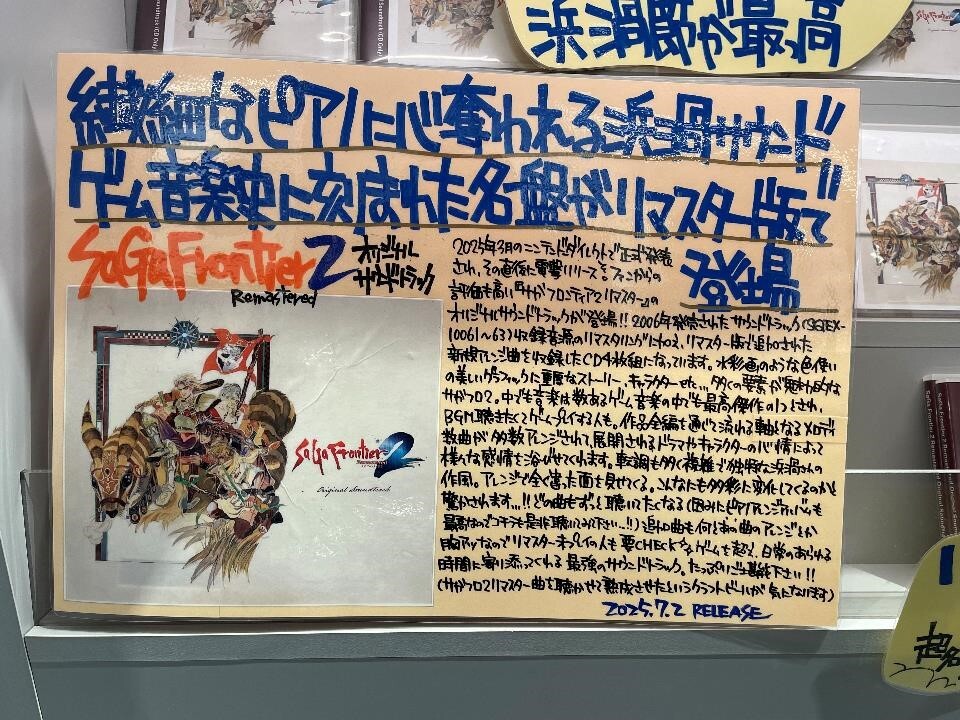 浜渦節が最高
繊細なピアノに心奪われる浜渦サウンド
ゲーム音楽史に刻まれた名盤がリマスター版で
登場
SaGa Frontier 2
Remastered
オリジナル
サウンドトラック
2025年3月のニンテンドーダイレクトで正式発表
され、その直後に電撃リリース&ファンからの
評価も高い『サガフロンティア2リマスター』の
オリジナルサウンドトラックが登場!!2006年発売されたサウンドトラック(SQEX-
10061〜63)収録音源のリマスタリングに加え、リマスター版で追加された
新規アレンジ曲を収録したCD4枚組になっています。水彩画のような色使い
の美しいグラフィックに重厚なストーリー、キャラクター
サガフロ2。中でも音楽は数あるゲーム音楽の中でも最高傑作の1つとされ、
BGM聴きたくてゲームプレイする人も。作品全編を通じて流れる軸となるメロデ
数曲が多数アレンジされて、展開されるドラマやキャラクターの心情によって
様々な感情を浴びせてくれます。転調も多く複雑で独特な浜渦さんの
作風。アレンジで全く違った面を見せてくる。こんなにも多彩に変化してくるのかと
驚かされます…!!どの曲もずっと聴いてたくなる(因みにピアノアレンジアルバムも
最高なのでコチラも是非聴いてみて下さい…!!)追加曲も何とあの曲のアレンジとか
胸アツなのでリマスター未プレイの人も要CHECK ゲームを超え、日常のあらゆる
時間に寄り添ってくれる最強のサウンドトラック。たっぷりご堪能下さい!!
(サガフロ2リマスター曲を聴かせて熟成させたというクラフトビールが気になります)
2025.7.2 RELEASE
SaGa Frontier 2
Remastered
Original Soundtrack
SaGa Frontier 2 Remastered Original Soundtrack
超名